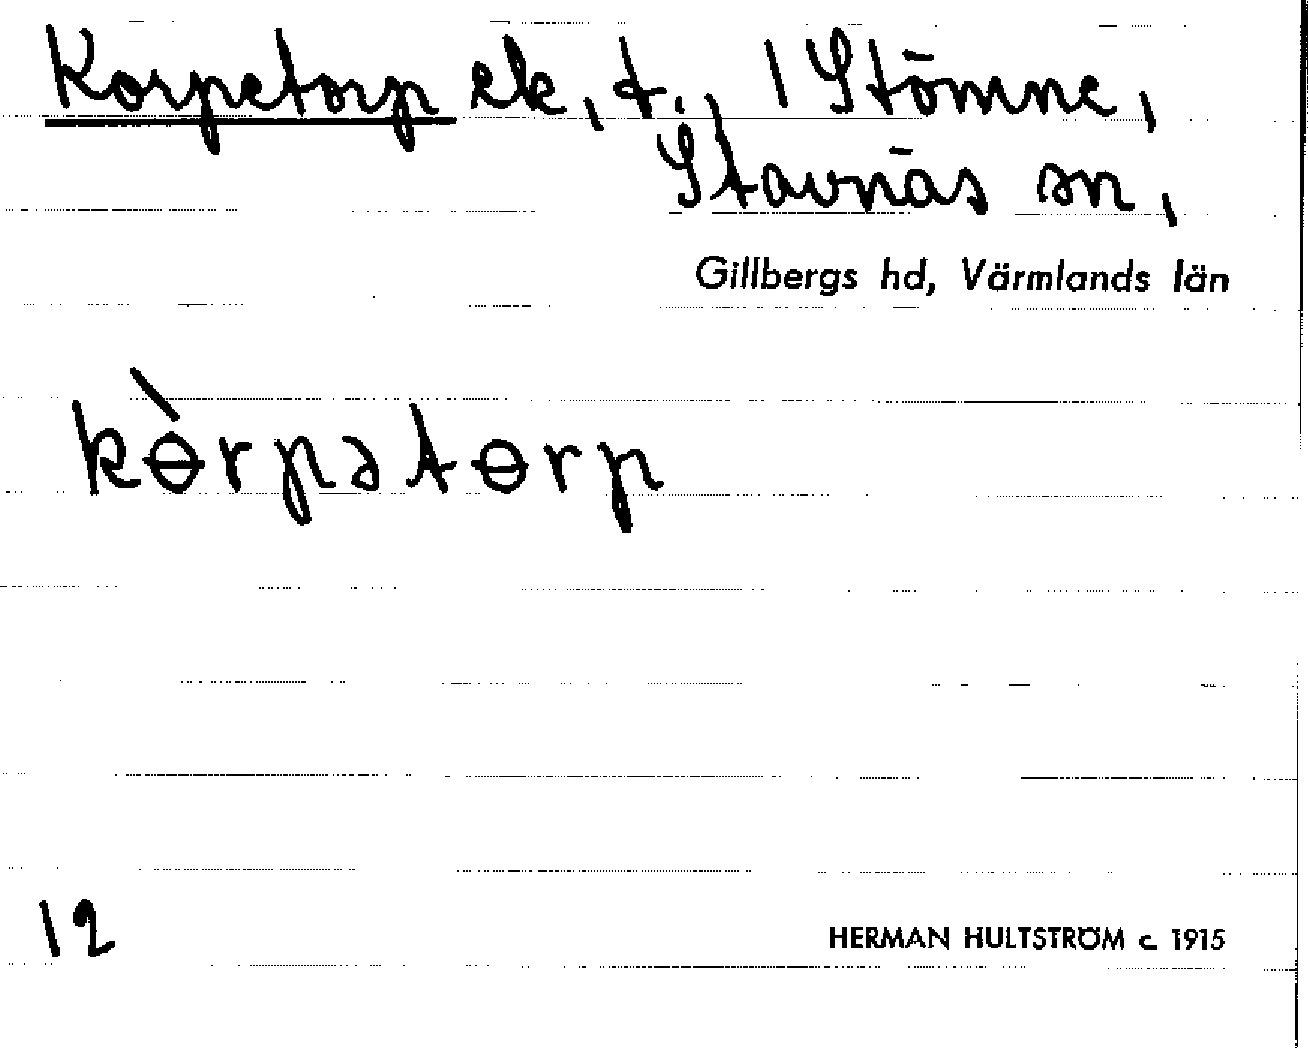 Korpetorp ek, t., 1 Stömne,
Stavnäs sn,
Gillbergs hd, Värmlands län
kɵ̀rpətɵrp
12
HERMAN HULTSTRÖM c. 1915